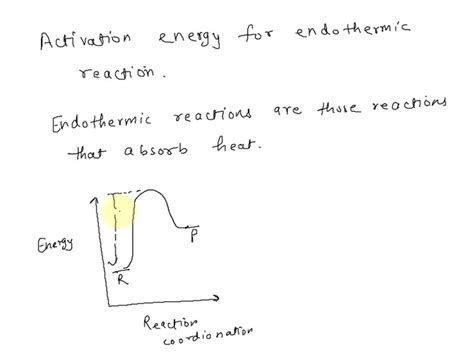 Activation energy for endothermic
reaction.
Endothermic reactions are those reactions
that absorb heat.
Energy
R
P
Reaction
coordionation